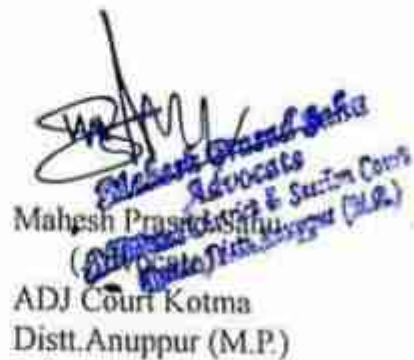 Mahesh Prasad Sahu
Advocate
& Sesion Court
Distt. Anuppur (M.P.)
Mahesh Prasad Sahu
(Advocate)
ADJ Court Kotma
Distt.Anuppur (M.P.)